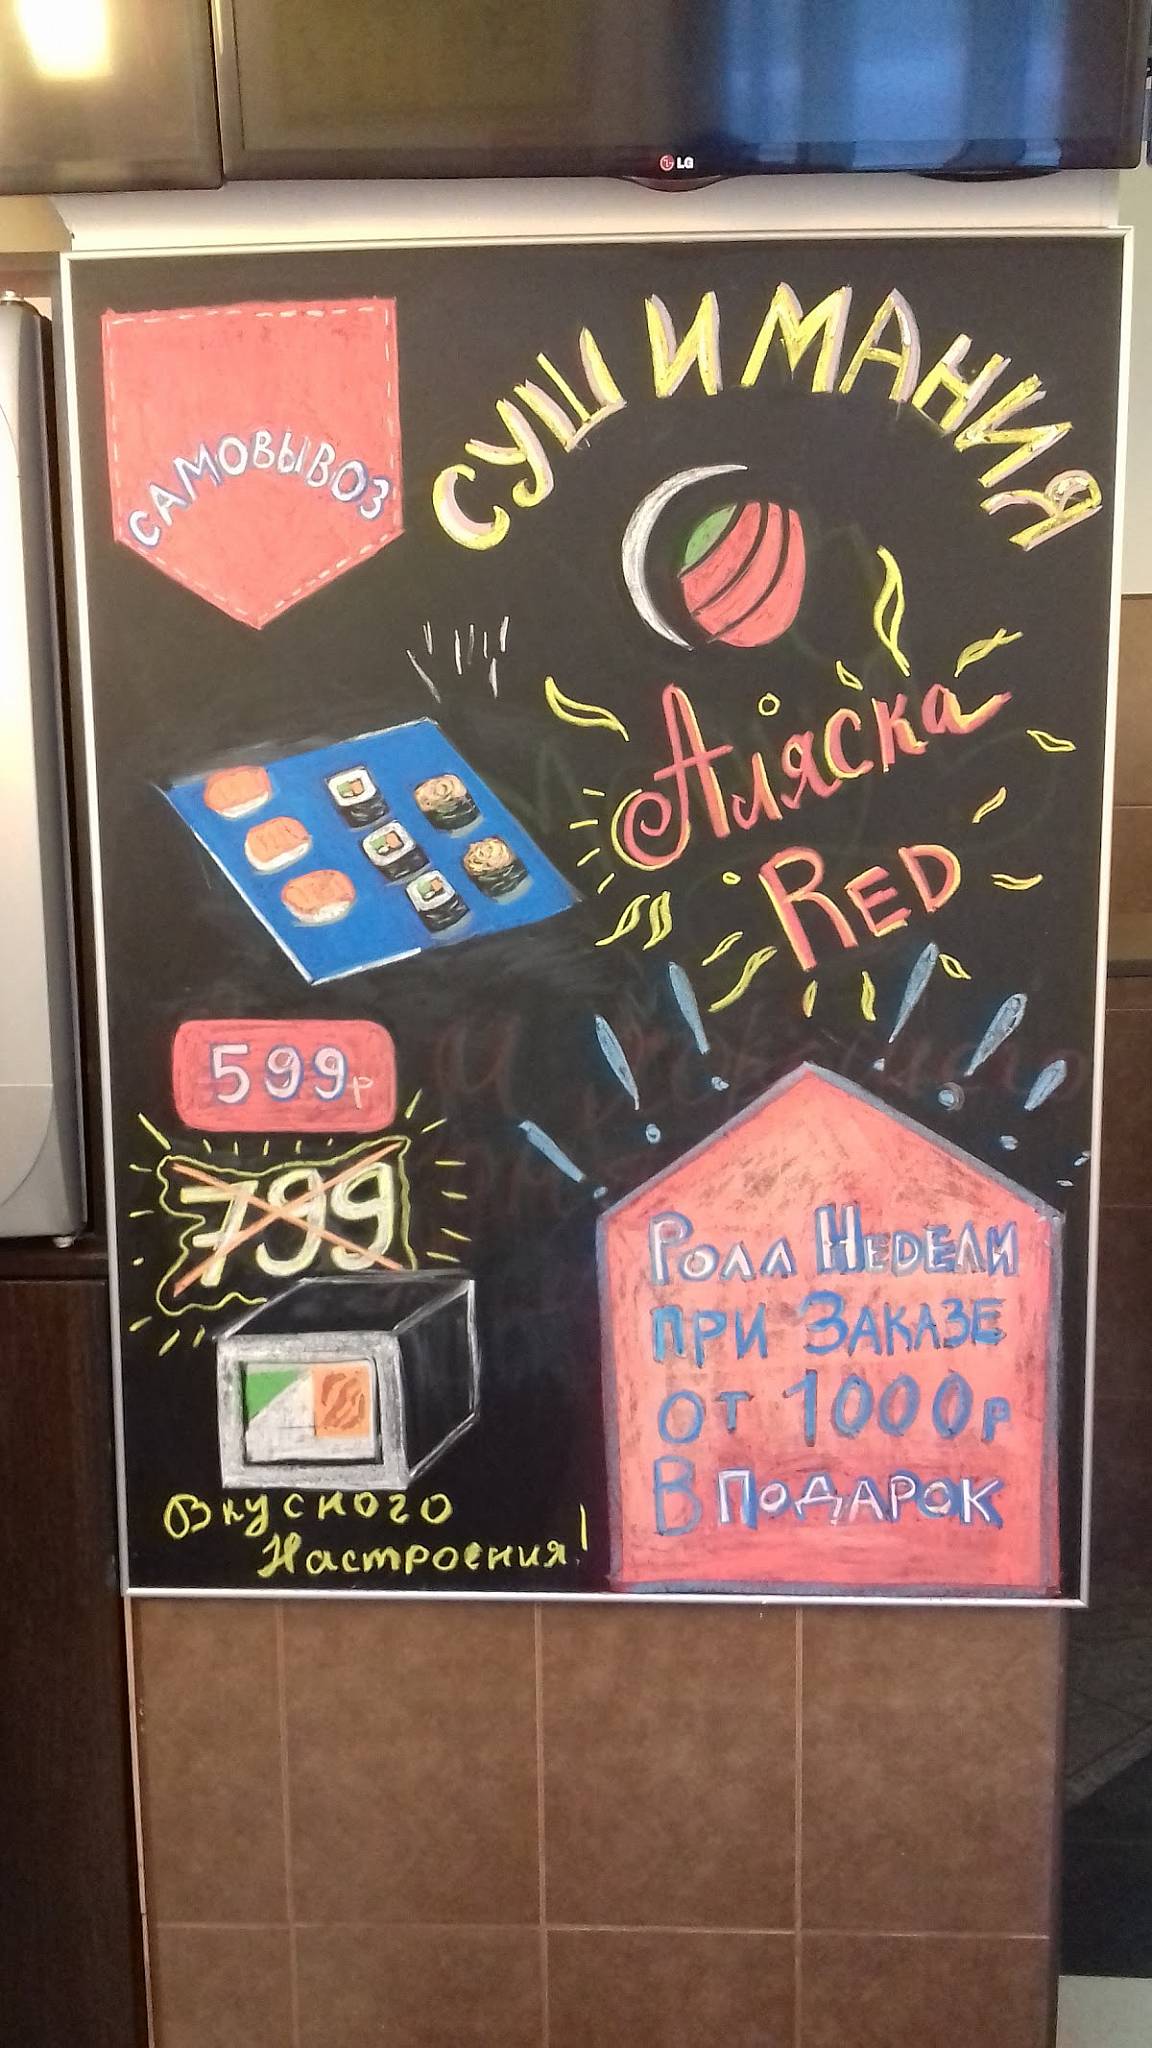 LG
СУШИМАНИЯ
САМОВЫВОЗ
Аляска
RED
599р
799
Ролл Недели
при Заказе
от 1000р
В Подарок
Вкусного
Настроения!